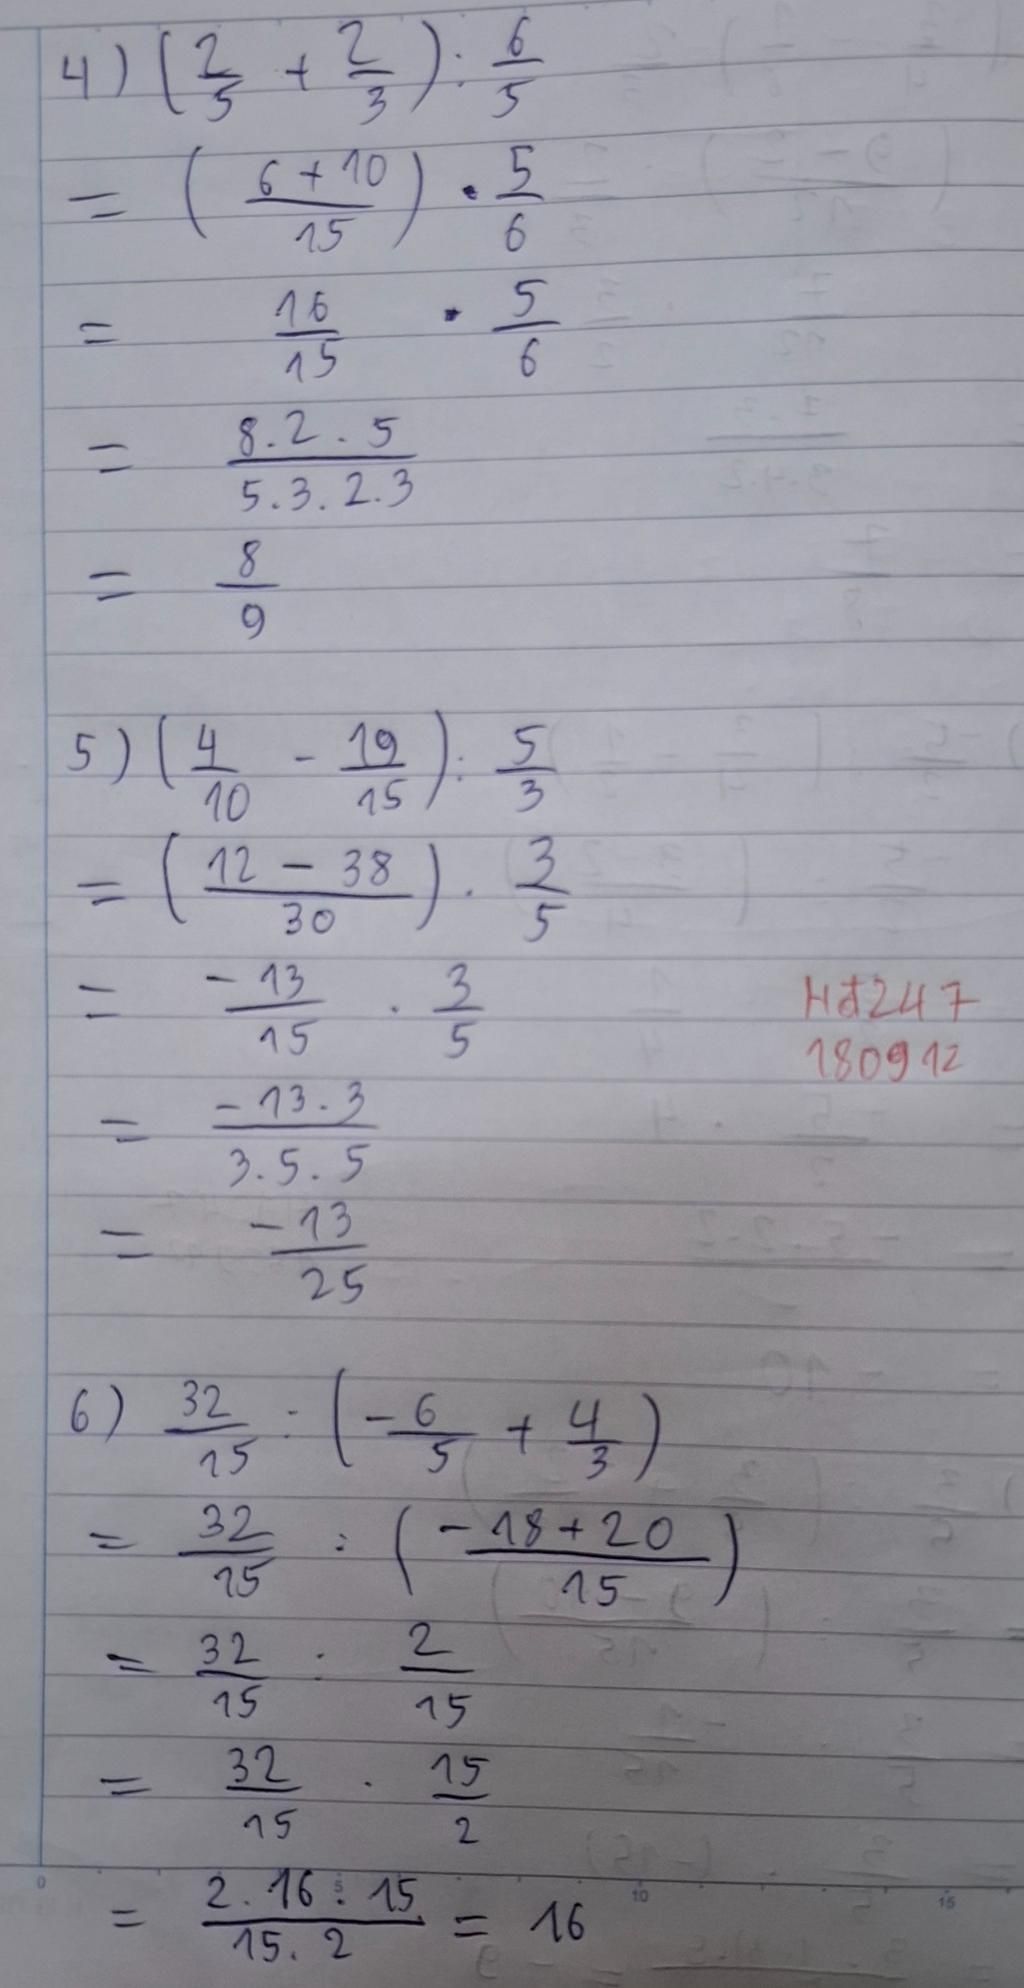 4) (2/5 + 2/3) : 6/5
= ((6 + 10)/15) · 5/6
= 16/15 · 5/6
= (8.2.5)/(5.3.2.3)
= 8/9
5) (4/10 - 19/15) : 5/3
= ((12 - 38)/30) · 3/5
= -13/15 · 3/5
= (-13.3)/(3.5.5)
= -13/25
180912
6) 32/15 : (-6/5 + 4/3)
= 32/15 : ((-18 + 20)/15)
= 32/15 : 2/15
= 32/15 · 15/2
= (2.16.15)/(15.2) = 16
0 5 10 15